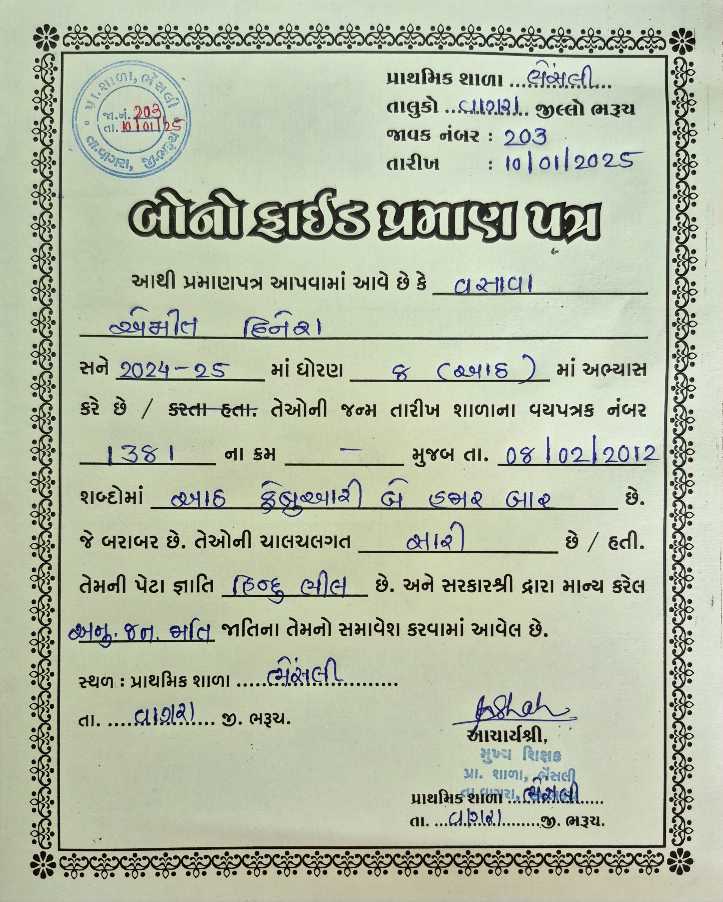 પ્રા.શાળા, ભેંસલી
જા.નં. 203
તા. 10/01/25
તા.વાગરા, જી.ભરૂચ
પ્રાથમિક શાળા ..ભેંસલી...
તાલુકો ..વાગરા.. જીલ્લો ભરૂચ
જાવક નંબર : 203
તારીખ : 10/01/2025
બોનોફાઈડ પ્રમાણ પત્ર
આથી પ્રમાણપત્ર આપવામાં આવે છે કે વસાવા
અમીત દિનેશ
સને 2024-25 માં ધોરણ 8 (આઠ) માં અભ્યાસ
કરે છે / કરતા હતા. તેઓની જન્મ તારીખ શાળાના વયપત્રક નંબર
1381 ના ક્રમ - મુજબ તા. 08/02/2012
શબ્દોમાં આઠ ફેબ્રુઆરી બે હજાર બાર છે.
જે બરાબર છે. તેઓની ચાલચલગત સારી છે / હતી.
તેમની પેટા જ્ઞાતિ હિન્દુ ભીલ છે. અને સરકારશ્રી દ્રારા માન્ય કરેલ
અનુ. જન. જાતિ જાતિના તેમનો સમાવેશ કરવામાં આવેલ છે.
સ્થળ : પ્રાથમિક શાળા .....ભેંસલી..........
તા. ....વાગરા.... જી. ભરૂચ.
આચાર્યશ્રી,
મુખ્ય શિક્ષક
પ્રા. શાળા, ભેંસલી
તા.વાગરા,
પ્રાથમિક શાળા ..ભેંસલી.....
તા. ...વાગરા........જી. ભરૂચ.